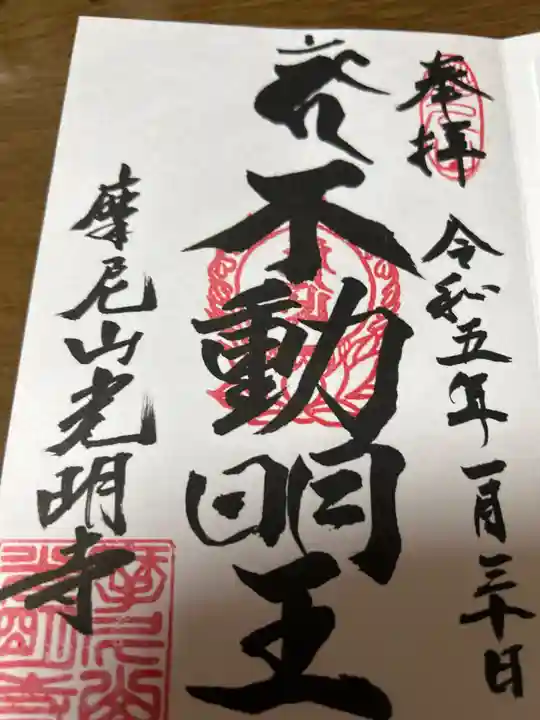 奉拝
令和五年一月三十日
不動明王
摩尼山光明寺